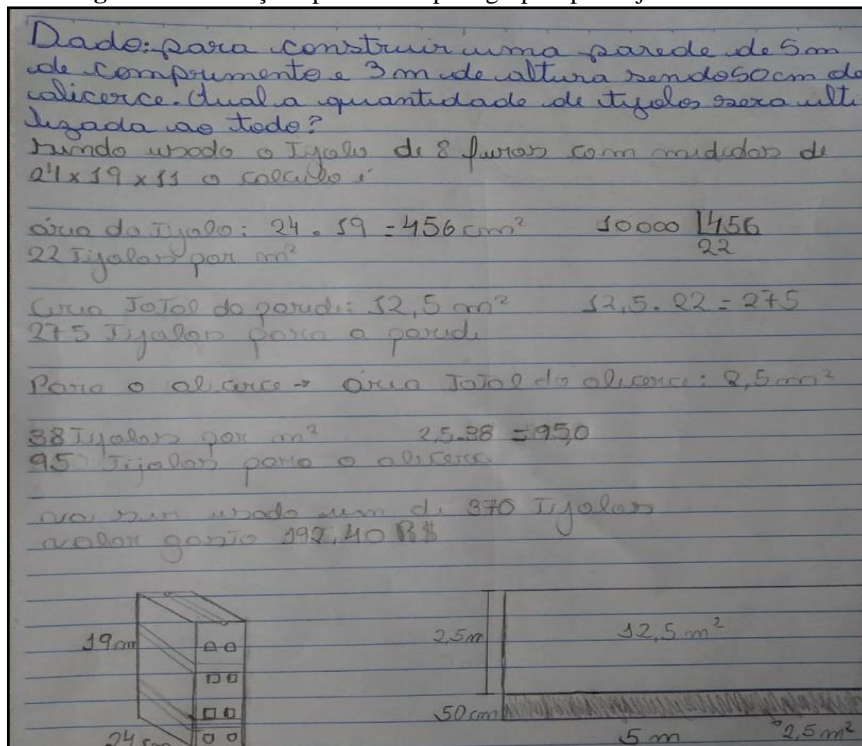 Dado: para construir uma parede de 5m
de comprimento e 3m de altura sendo 50cm de
alicerce. Qual a quantidade de tijolos sera ulti
lizada ao todo?
sendo usado o Tijolo de 8 furos com medidas de
24x19x11 o calculo é
área do Tijolo: 24 . 19 = 456 cm² 10000 456
22
22 Tijolos por m²
Área Total da parede: 12,5 m² 12,5 . 22 = 275
275 Tijolos para a parede
Para o alicerce → área Total do alicerce: 2,5 m²
38 Tijolos por m² 2,5.38 = 95,0
95 Tijolos para o alicerce
vai ser usado um d. 370 Tijolos
valor gasto 192,40 R$
19cm
24 cm
2,5m
12,5 m²
50 cm
5 m
2,5 m²